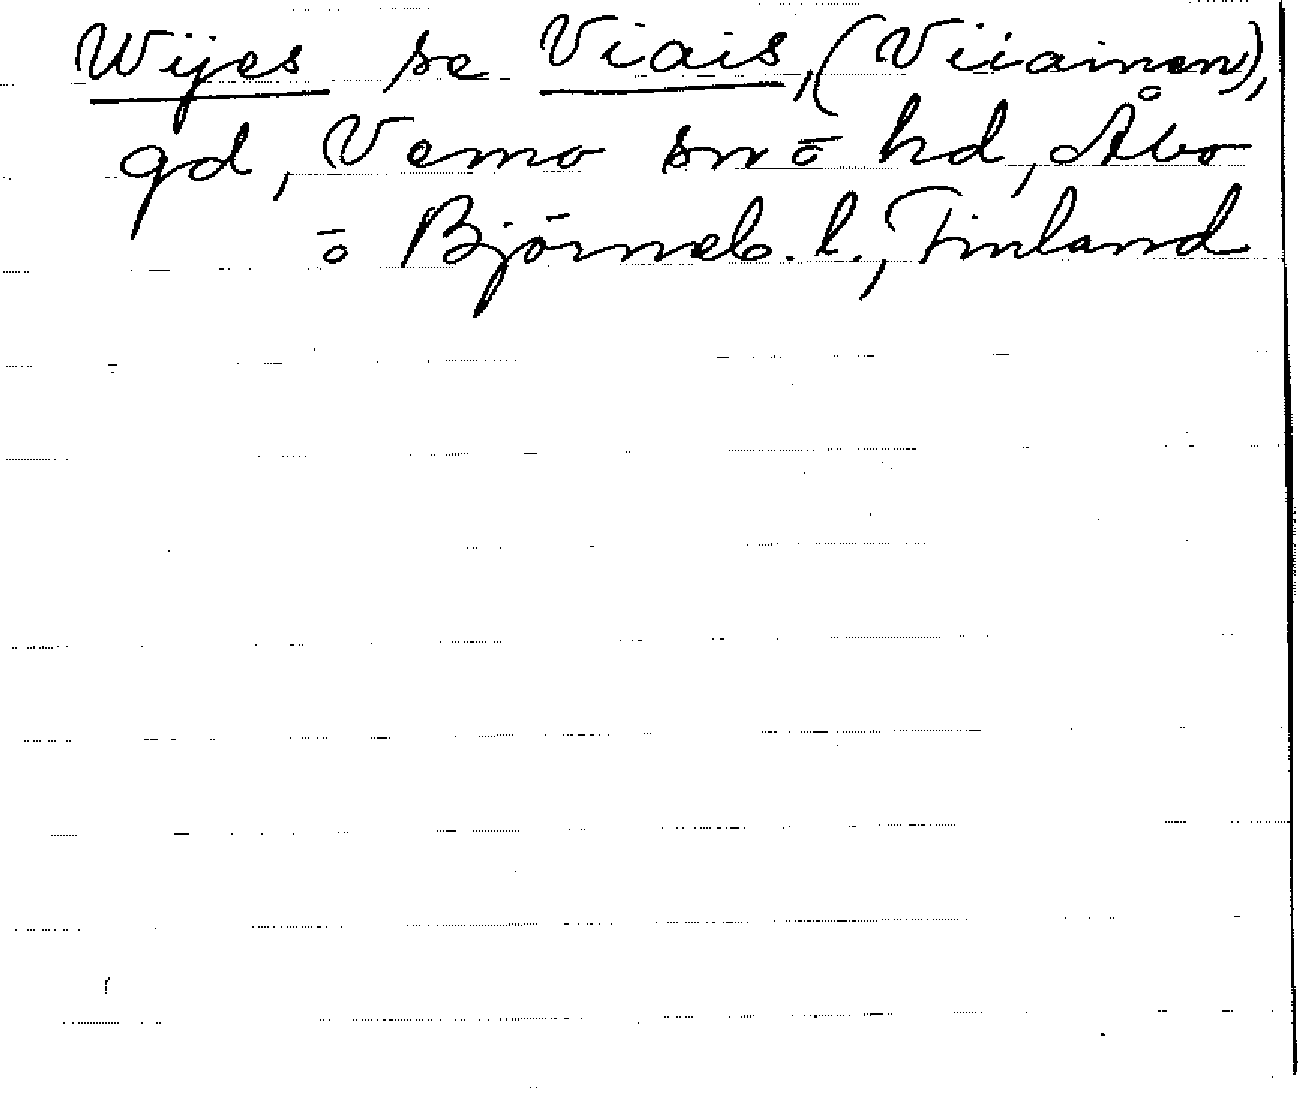 Wijes se Viais, (Viiainen),
gd, Vemo sn ō hd, Åbo
ō Björneb. l., Finland